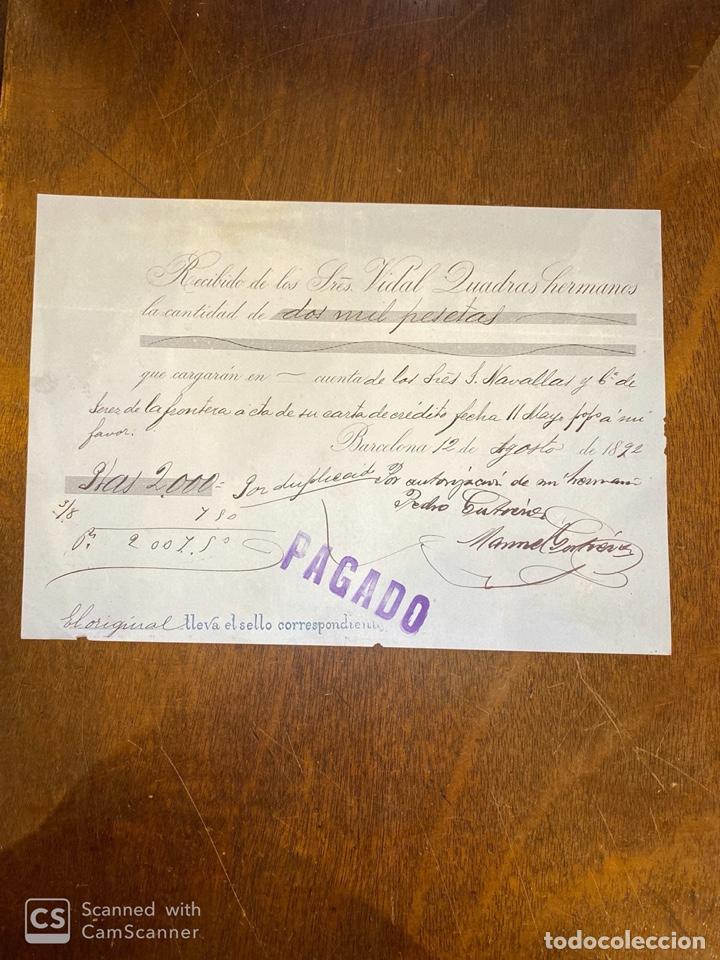 Recibido de los Sres. Vidal Quadras hermanos
la cantidad de dos mil pesetas
que cargarán en — cuenta de los Sres J. Navallas y Cª de
Jerez de la frontera a cta de su carta de crédito fecha 11 Mayo á mi
favor.
Barcelona 12 de Agosto de 1892
Ptas 2.000= Por duplicado Por autorización de mi hermano
3/8 7 50 Pedro Gutierrez
Ps. 2 007.50 Manuel Gutierrez
PAGADO
El original lleva el sello correspondiente
CS Scanned with
CamScanner
todocoleccion